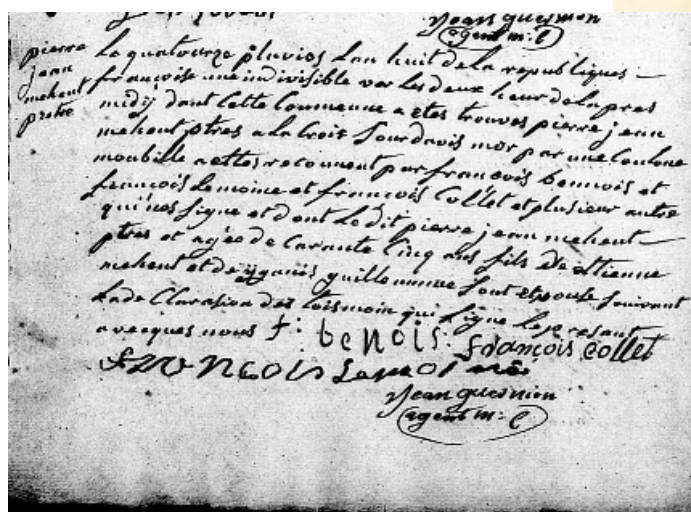 jean guesnion
agent m: l
pierre
jean
mehent
pretre
Le quatourze pluvios Lan huit de La republiques
francoise une indivisible ver Les deux heur de la pres
midij dant Cette Commenne a etes trouves pierre jean
mehent ptres a la Croix Sourdavis mor par une Coulone
moubille a ettes reconnent par francois bennois et
francois Lemoine et francois Collet et plusieur autre
qui nos signe et dont Le dit pierre jean mehent
ptres et agee de Carante Cinq ans fils de ettienne
mehent et de guillemenne sont epouse suivant
La de Clarasion des toismoin qui signe Le presant
avecques nous f: benois: francois Collet
francois Lemoine
jean guesnion
agent m: l